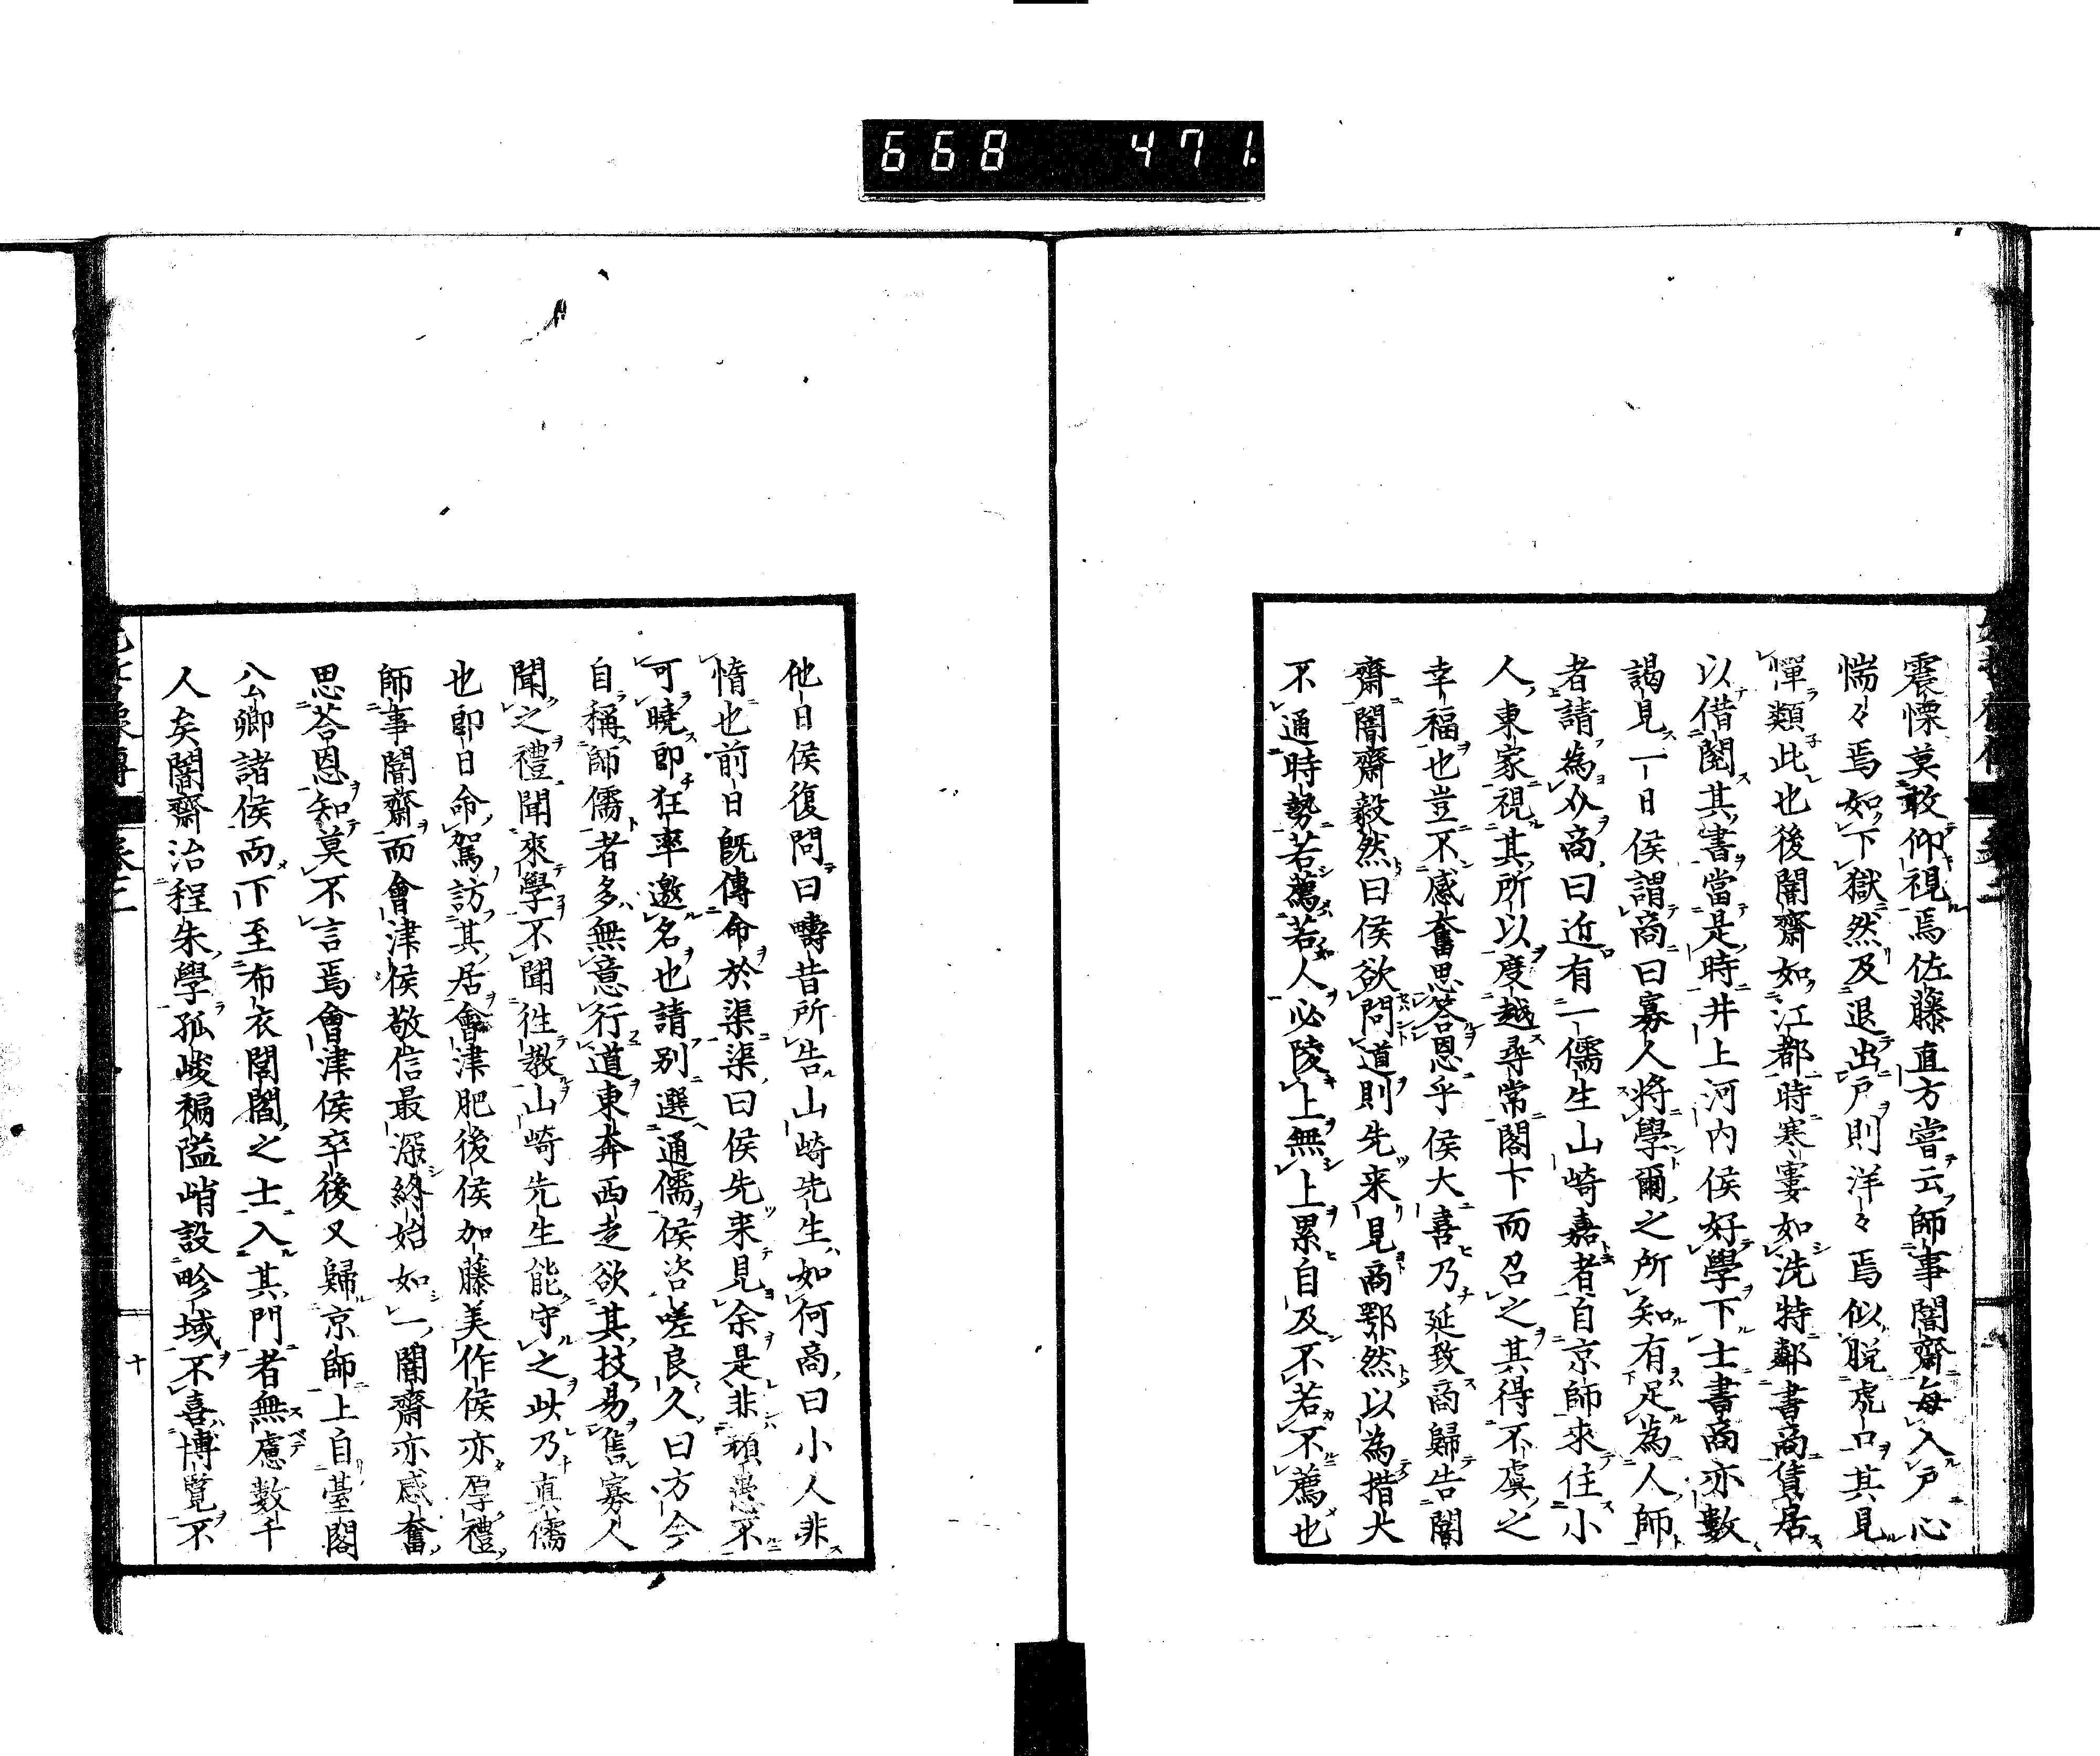 668 471
震慄莫敢仰視焉佐藤直方嘗云師事闇齋每入戸心
惴々焉如下獄然及退出戸則洋々焉似脱虎口其見
憚類此也後闇齋如江都時寒窶如洗特鄰書商賃居
以借閱其書當是時井上河内侯好學下士書商亦數
謁見一日侯謂商曰寡人將學爾之所知有足為人師
者請為介商曰近有一儒生山崎嘉者自京師來住小
人東家視其所以度越尋常閣下而召之其得不虞之
幸福也豈不感奮思答恩乎侯大喜乃延致商歸告闇
齋闇齋毅然曰侯欲問道則先来見商鄂然以為措大
不通時勢若薦若人必陵上無上累自及不若不薦也
他日侯復問曰疇昔所告山崎先生如何商曰小人非
惰也前日既傳命於渠渠曰侯先来見余是非頑愚不
可曉即狂率邀名也請別選通儒侯咨嗟良久曰方今
自稱師儒者多無意行道東奔西走欲其技易售寡人
聞之禮聞來學不聞徃教山崎先生能守之此乃真儒
也即日命駕訪其居會津肥後侯加藤美作侯亦厚禮
師事闇齋而會津侯敬信最深終始如一闇齋亦感奮
思荅恩知莫不言焉會津侯卒後又歸京師上自臺閣
公卿諸侯而下至布衣閭閻之士入其門者無慮數千
人矣闇齋治程朱學孤峻褊隘峭設畛域不喜博覽不
十